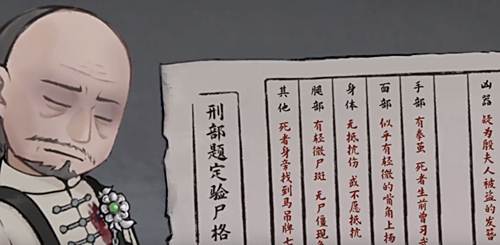 凶器 疑为殷夫人被盗的发
手部 有拳茧 死者生前曾习
面部 似乎有轻微的嘴角上扬
身体 无抵抗伤 或不愿抵抗
腿部 有轻微尸斑 无尸僵现
其他 死者身旁找到马吊牌七
刑部题定验尸格